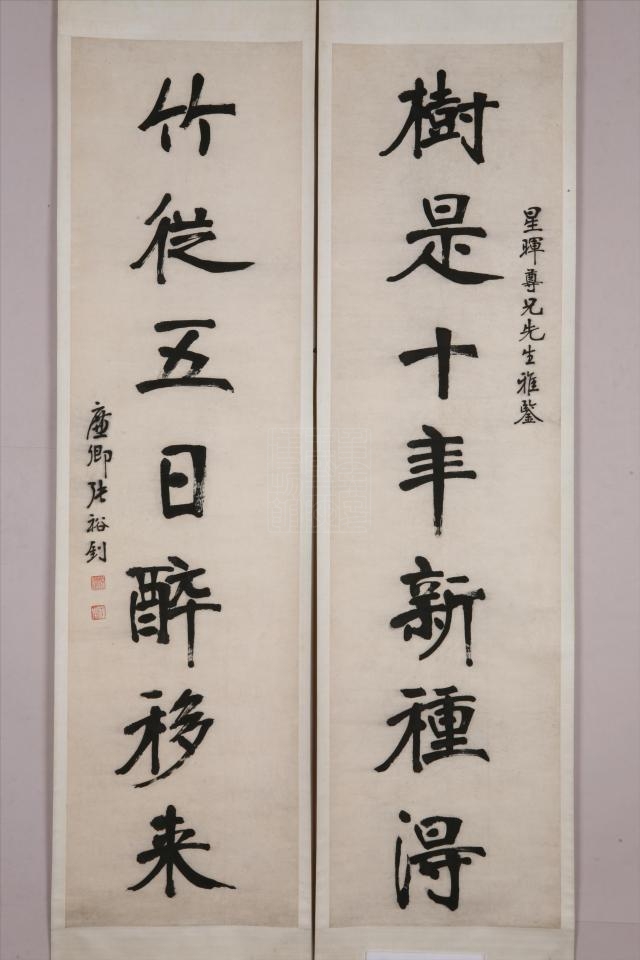 星暉尊兄先生雅鑒
樹是十年新種得
竹從五日醉移来
廉卿張裕釗